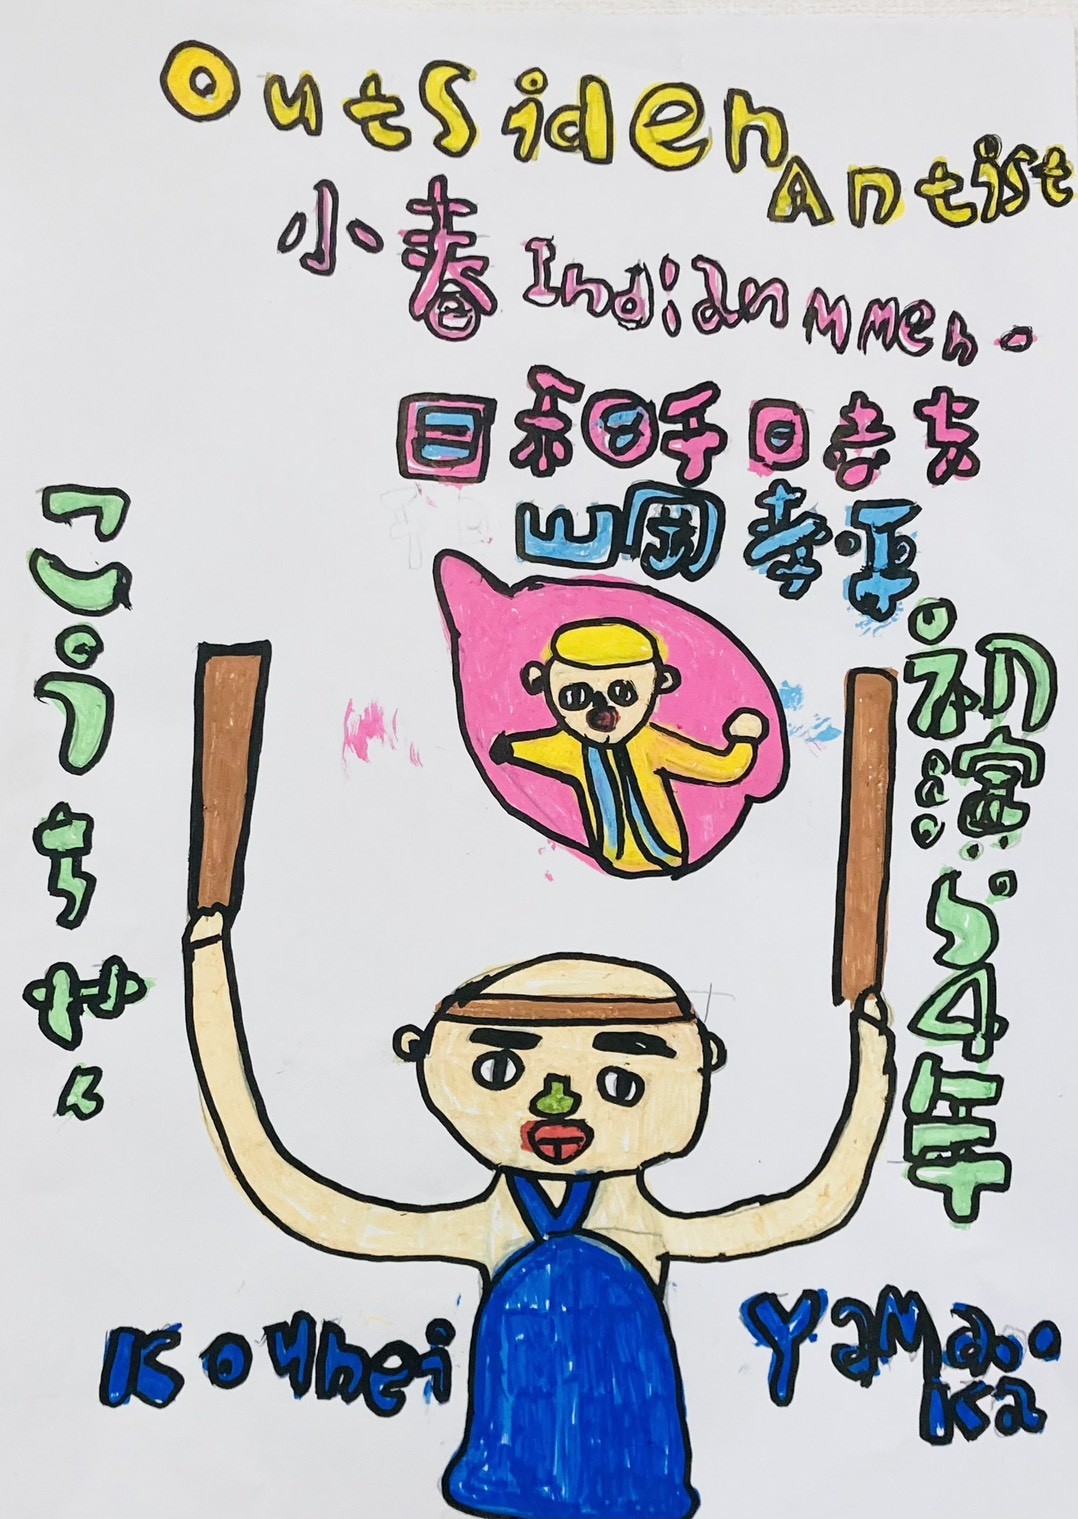 Outsiden
Antist
小春 Indian mmen.
日和 日時
山岡孝平
こうちせん
初演から4年
Kouhei
Yamao
ka